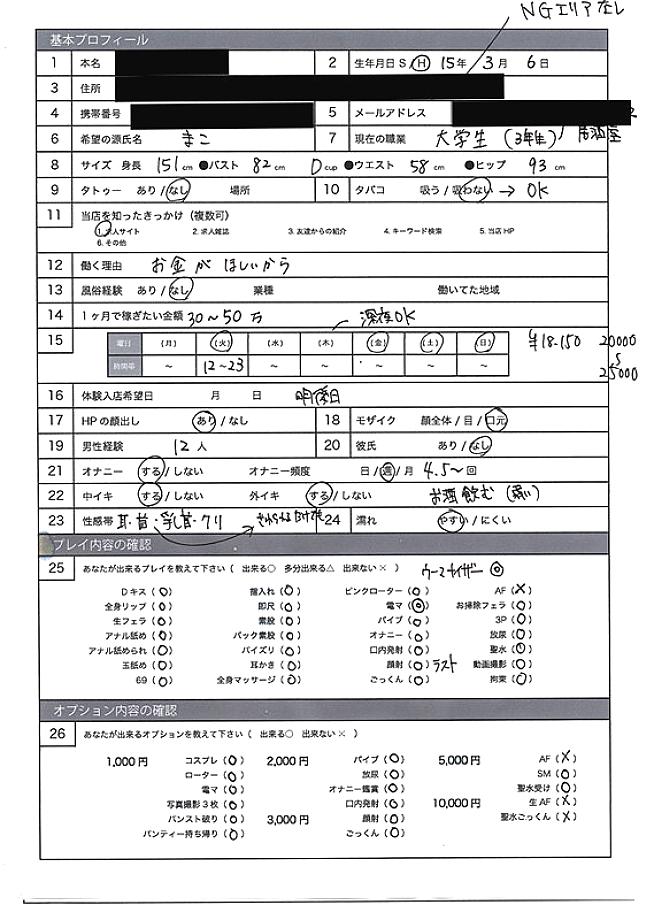 NGエリアなし
基本プロフィール
1 本名
2 生年月日 S / H 15年 3月 6日
3 住所
4 携帯番号
5 メールアドレス
6 希望の源氏名 まこ
7 現在の職業 大学生(3年生) 居酒屋
8 サイズ 身長 151cm ●バスト 82cm Dcup ●ウエスト 58cm ●ヒップ 93cm
9 タトゥー あり / なし 場所
10 タバコ 吸う / 吸わない → OK
11 当店を知ったきっかけ(複数可)
1. 求人サイト 2. 求人雑誌 3. 友達からの紹介 4. キーワード検索 5. 当店 HP
6. その他
12 働く理由 お金がほしいから
13 風俗経験 あり / なし 業種 働いてた地域
14 1ヶ月で稼ぎたい金額 30〜50万
深夜OK
15 曜日 (月) (火) (水) (木) (金) (土) (日)
時間帯 〜 12〜23 〜 〜 〜 〜 〜
20000
25000
16 体験入店希望日 月 日
17 HPの顔出し あり / なし
18 モザイク 顔全体 / 目 / 口元
19 男性経験 12人
20 彼氏 あり / なし
21 オナニー する / しない オナニー頻度 日 / 週 / 月 4.5〜回
22 中イキ する / しない 外イキ する / しない お酒 飲む (弱い)
23 性感帯 耳・首・乳首・クリ
24 濡れ やすい / にくい
プレイ内容の確認
25 あなたが出来るプレイを教えて下さい( 出来る○ 多分出来る△ 出来ない× ) ウーマナイザー ◎
Dキス (○) 指入れ (○) ピンクローター (○) AF (×)
全身リップ (○) 即尺 (○) 電マ (◎) お掃除フェラ (○)
生フェラ (○) 素股 (○) バイブ (○) 3P (○)
アナル舐め (○) バック素股 (○) オナニー (○) 放尿 (○)
アナル舐められ (○) パイズリ (○) 口内発射 (○) 聖水 (○)
玉舐め (○) 耳かき (○) 顔射 (○) ラスト 動画撮影 (○)
69 (○) 全身マッサージ (○) ごっくん (○) 拘束 (○)
オプション内容の確認
26 あなたが出来るオプションを教えて下さい( 出来る○ 出来ない× )
1,000円 コスプレ (○) 2,000円 バイブ (○) 5,000円 AF (×)
ローター (○) 放尿 (○) SM (○)
電マ (○) オナニー鑑賞 (○) 聖水受け (○)
写真撮影3枚 (○) 口内発射 (○) 10,000円 生AF (×)
パンスト破り (○) 3,000円 顔射 (○) 聖水ごっくん (×)
パンティー持ち帰り (○) ごっくん (○)